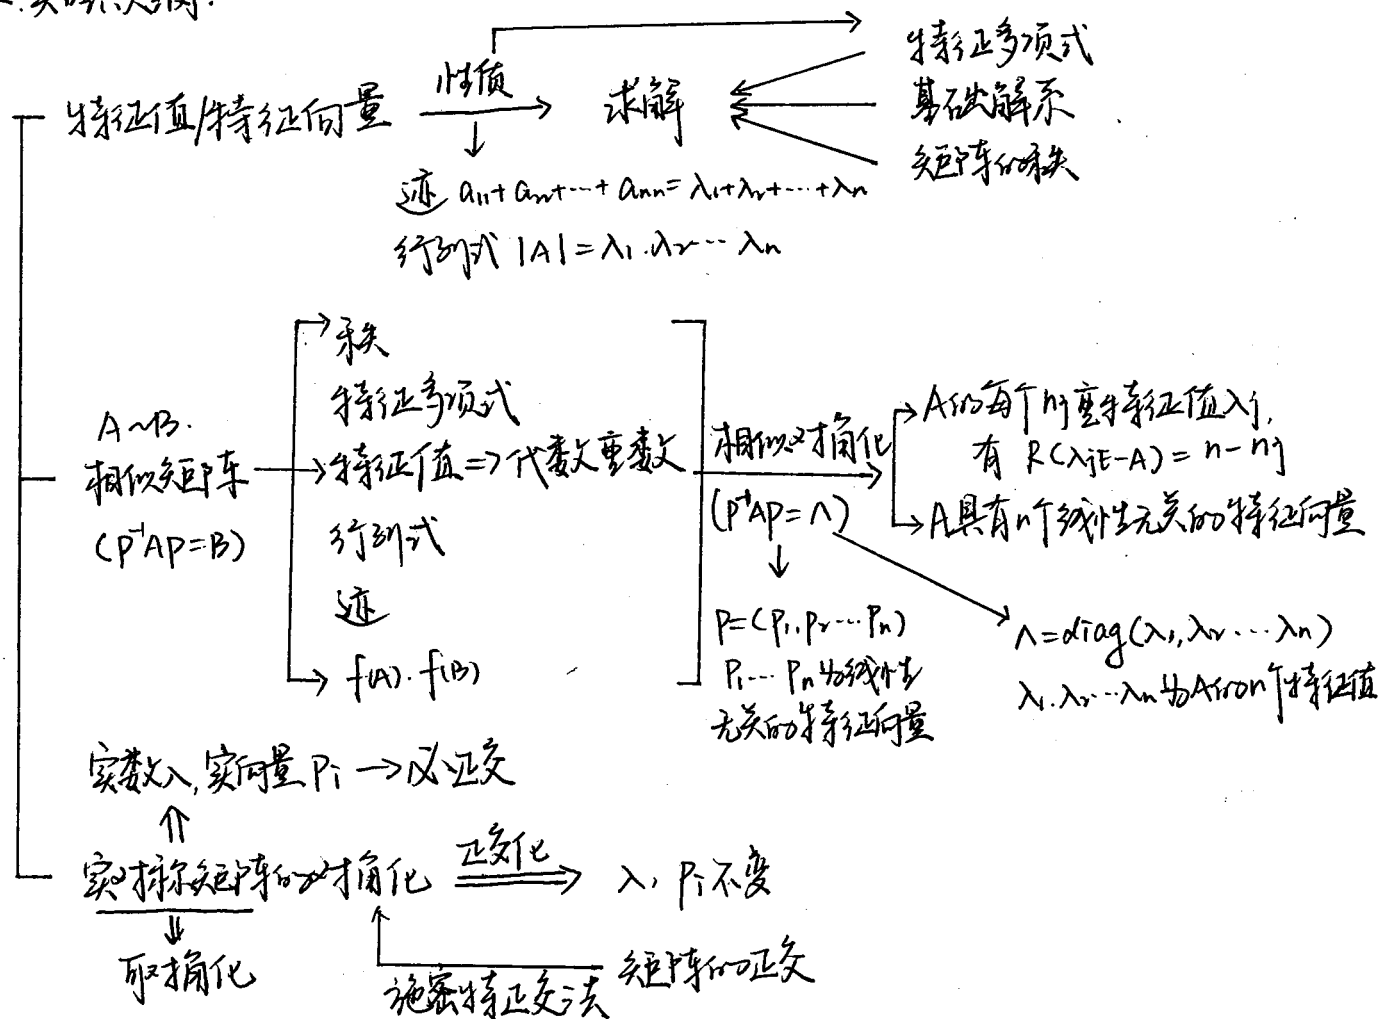 特征值/特征向量
性质
求解
特征多项式
基础解系
矩阵的秩
迹 a₁₁+a₂₂+…+aₙₙ=λ₁+λ₂+…+λₙ
行列式 |A|=λ₁.λ₂…λₙ
A~B.
相似矩阵
(P⁻¹AP=B)
秩
特征多项式
特征值=>代数重数
行列式
迹
f(A).f(B)
相似对角化
(P⁻¹AP=Λ)
A的每个nj重特征值λj,
有 R(λjE-A)=n-nj
A具有n个线性无关的特征向量
P=(P₁,P₂…Pₙ)
P₁…Pₙ为线性
无关的特征向量
Λ=diag(λ₁,λ₂…λₙ)
λ₁.λ₂…λₙ为A的n个特征值
实数λ,实向量Pi→必正交
实对称矩阵的对角化
正交化
λ,Pi不变
可对角化
施密特正交法
矩阵的正交